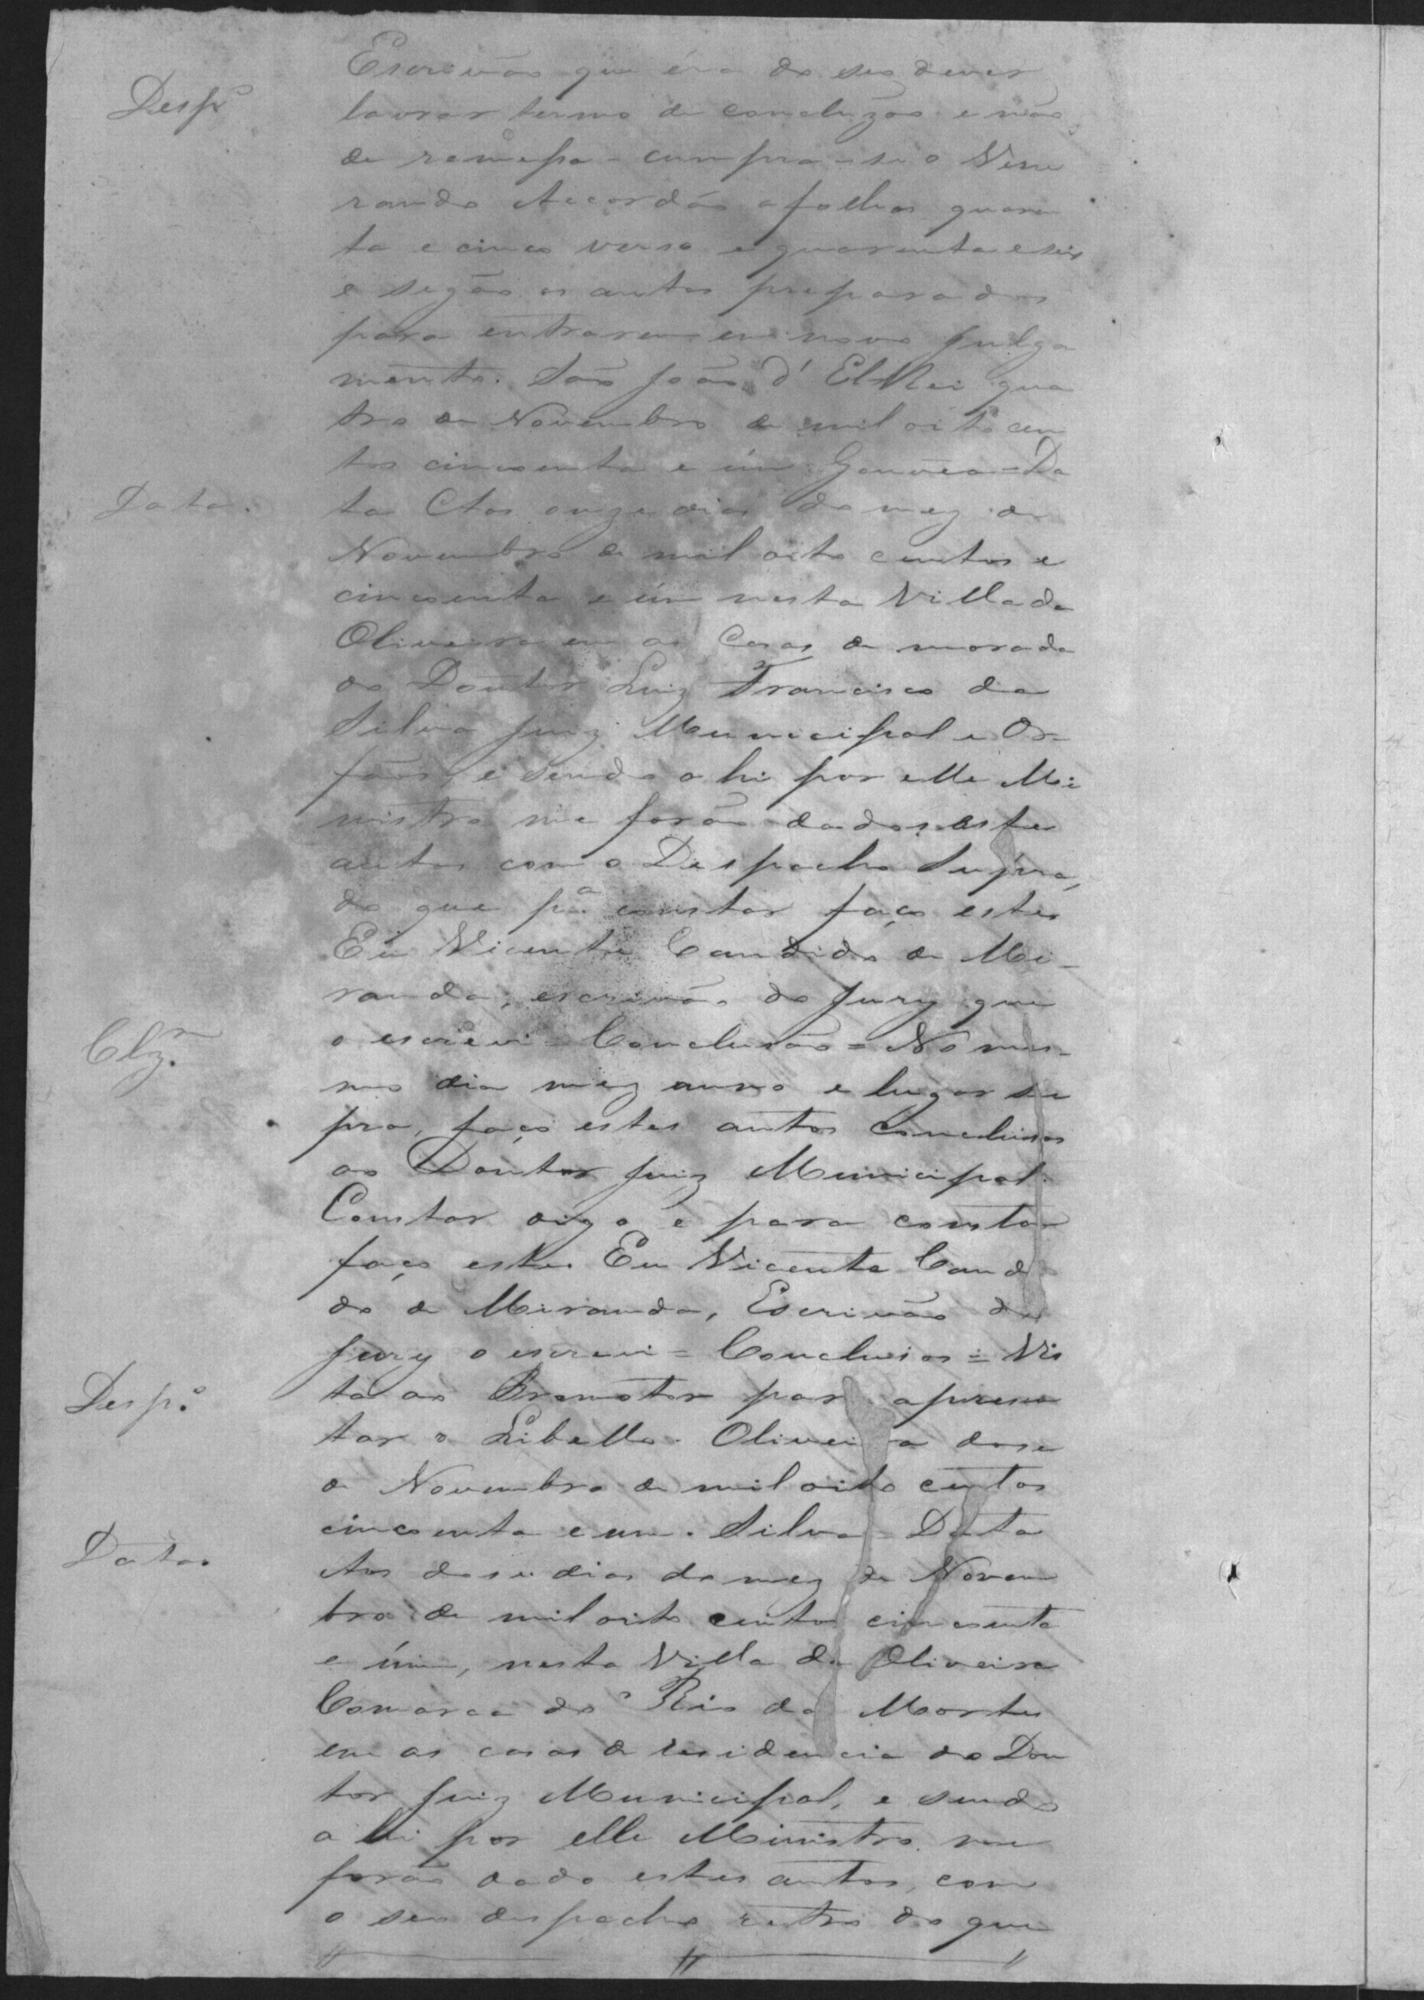 Escrivão que éra do seo dever
Despº
lavrar termo de concluzão e não
de remessa - cumpra-se o Vene
rando Accordão a folhas quaren
ta e cinco verso e quarenta e seis
e sejão os autos preparados
para entrarem em novo julga
mento. São João d' El Rei qua
tro de Novembro de mil oito cen
tos cincoenta e úm. Gouvêa = Da
Data.
ta Aos onze dias do mez de
Novembro de mil oito centos e
cincoenta e úm nesta Villa da
Oliveira em as Casas de morada
do Doutor Luiz Francisco da
Silva Juiz Municipal e Or-
fãos, e sendo ahi por elle Mi
nistro me forão dados estes
autos com o Despacho Supra,
do que pª constar faço estes
Eu Vicente Candido de Mi-
randa, escrivão do Jury que
o escrevi = Conclusão = No mes-
Clzm.
mo dia mez anno e lugar su
pra, faço estes autos conclusos
ao Doutor Juiz Municipal.
Constar digo e para constar
faço estes Eu Vicente Candi
do de Miranda, Escrivão do
Jury o escrevi = Conclusos = Vis
Despº
ta ao Promotor para apresen
tar o Libello. Oliveira dose
de Novembro de mil oito centos
cincoenta e um. Silva = Data
Data
Aos dose dias do mez de Novem
bro de mil oito centos cincoenta
e úm, nesta Villa da Oliveira
Comarca do Rio das Mortes
em as casas de residencia do Dou
tor Juiz Municipal, e sendo
ahi por elle Ministro me
forão dado estes autos, com
o seu despacho retro do que